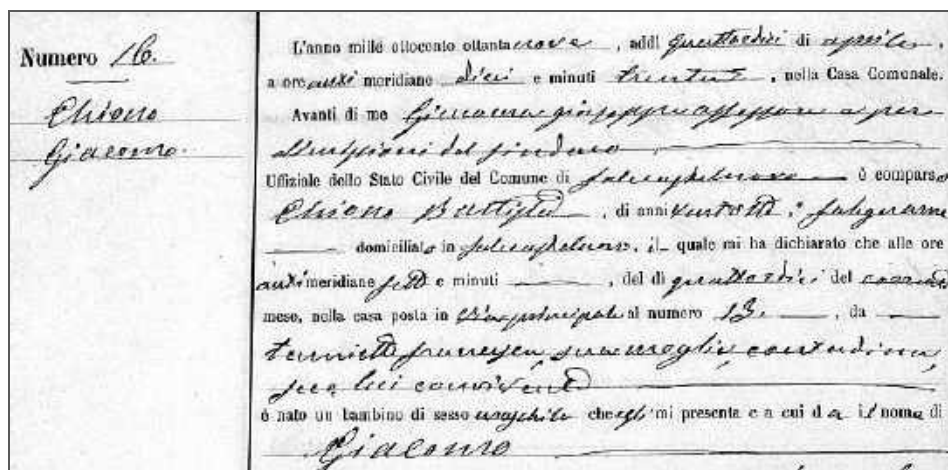 Numero 16.
Chiono
Giacomo.
L'anno mille ottocento ottantanove, addì quattordici di aprile,
a ore anti meridiane dieci e minuti trenta, nella Casa Comunale.
Avanti di me Giacoma Giuseppe assessore e per
del sindaco
Uffiziale dello Stato Civile del Comune di Salacastelnuovo è comparso
Chiono Battista, di anni ventotto, falegname
domiciliato in, il quale mi ha dichiarato che alle ore
anti meridiane sette e minuti, del dì quattordici del corrente
mese, nella casa posta in via principale al numero 13., da
francesca sua moglie contadina
seco lui convivente
è nato un bambino di sesso maschile che egli mi presenta e a cui da il nome di
Giacomo